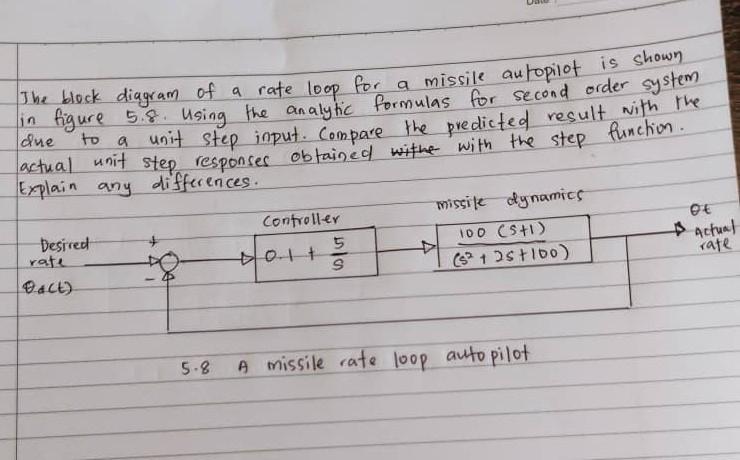 The block diagram of a rate loop for a missile autopilot is shown
in figure 5.8. Using the analytic formulas for second order system
due to a unit step input. Compare the predicted result with the
actual unit step responses obtained withe with the step function.
Explain any differences.
Controller
missile dynamics
Desired
rate
θd(t)
+
-
0.1 + 5/S
100 (S+1)
(s² + 2s+100)
θt
Actual
rate
5.8 A missile rate loop auto pilot